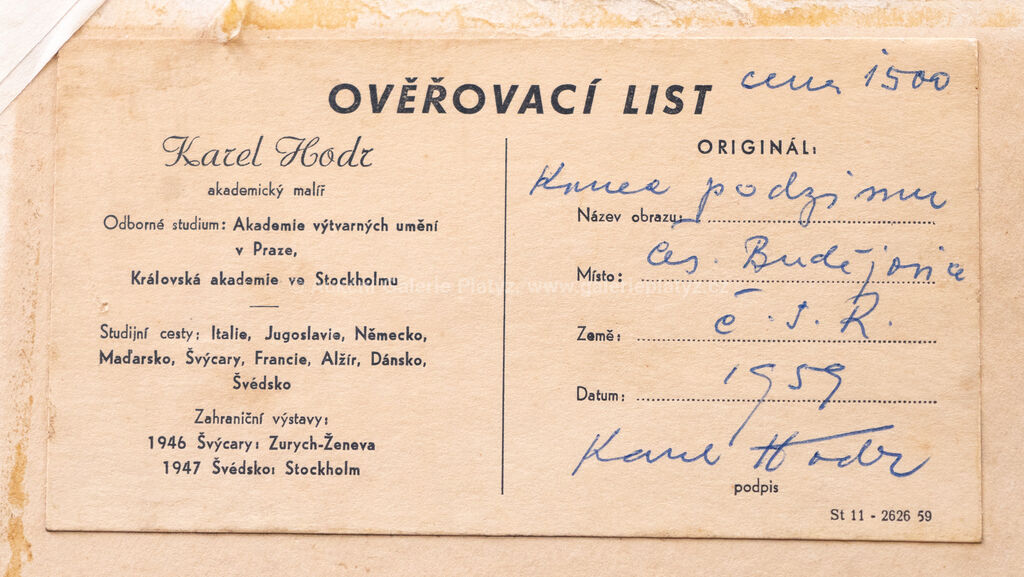 OVĚŘOVACÍ LIST
cena 1500
Karel Hodr
akademický malíř
Odborné studium: Akademie výtvarných umění
v Praze,
Královská akademie ve Stockholmu
Studijní cesty: Italie, Jugoslavie, Německo,
Maďarsko, Švýcary, Francie, Alžír, Dánsko,
Švédsko
Zahraniční výstavy:
1946 Švýcary: Zurych-Ženeva
1947 Švédsko: Stockholm
ORIGINÁL:
Konec podzimu
Název obrazu:
Čes. Budějovice
Místo:
Č. S. R.
Země:
1959
Datum:
Karel Hodr
podpis
St 11 - 2626 59
Galerie Platýz www.galerieplatyz.cz